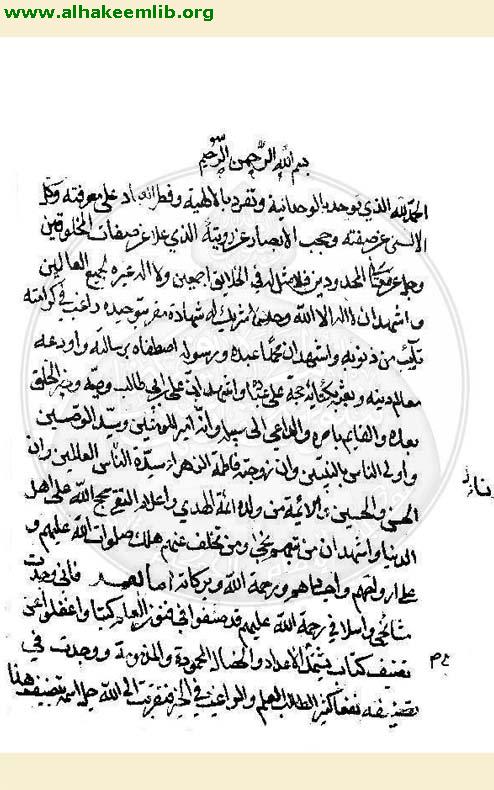 www.alhakeemlib.org
بسم الله الرحمن الرحيم
الحمد لله الذي توحد بالوحدانية وتفرد بالالهية وفطر العباد على معرفته وكل
الالسن عن صفته وحجب الابصار عن رويته الذي علا عن صفات المخلوقين
وجل عن معاني المحدودين فلا مثل له في الخلايق اجمعين ولا اله غيره لجميع العالمين
واشهد ان لا اله الا الله وحده لا شريك له شهادة مقر بتوحيده راغب في كرامته
تائب من ذنوبه واشهد ان محمدا عبده ورسوله اصطفاه برسالته واودعه
معالم دينه وبعثه بكتابه حجة على عباده واشهد ان علي بن ابي طالب وصيه وخير الخلق
بعده والقايم بامره والداعي الى سبيله وانه امير المومنين وسيد الوصيين
واولى الناس بالنبيين وان زوجته فاطمة الزهراء سيدة النساء العالمين وان
الحسن والحسين والائمة من ولده ائمة الهدى واعلام التقى حجج الله على اهل
الدنيا واشهد ان من تبعهم نجى ومن تخلف عنهم هلك صلوات الله عليهم و
على ارواحهم واجسادهم ورحمة الله وبركاته اما بعد فاني وجدت
مشائخي واسلافي رحمة الله عليهم قد صنفوا في فنون العلم كتبا واغفلوا عن
تصنيف كتاب يشتمل على الاعداد والخصال المحمودة والمذمومة ووجدت في
تصنيفه نفعا كثيرا لطالب العلم والراغب في الخير فتقربت الى الله جل اسمه بتصنيف هذا